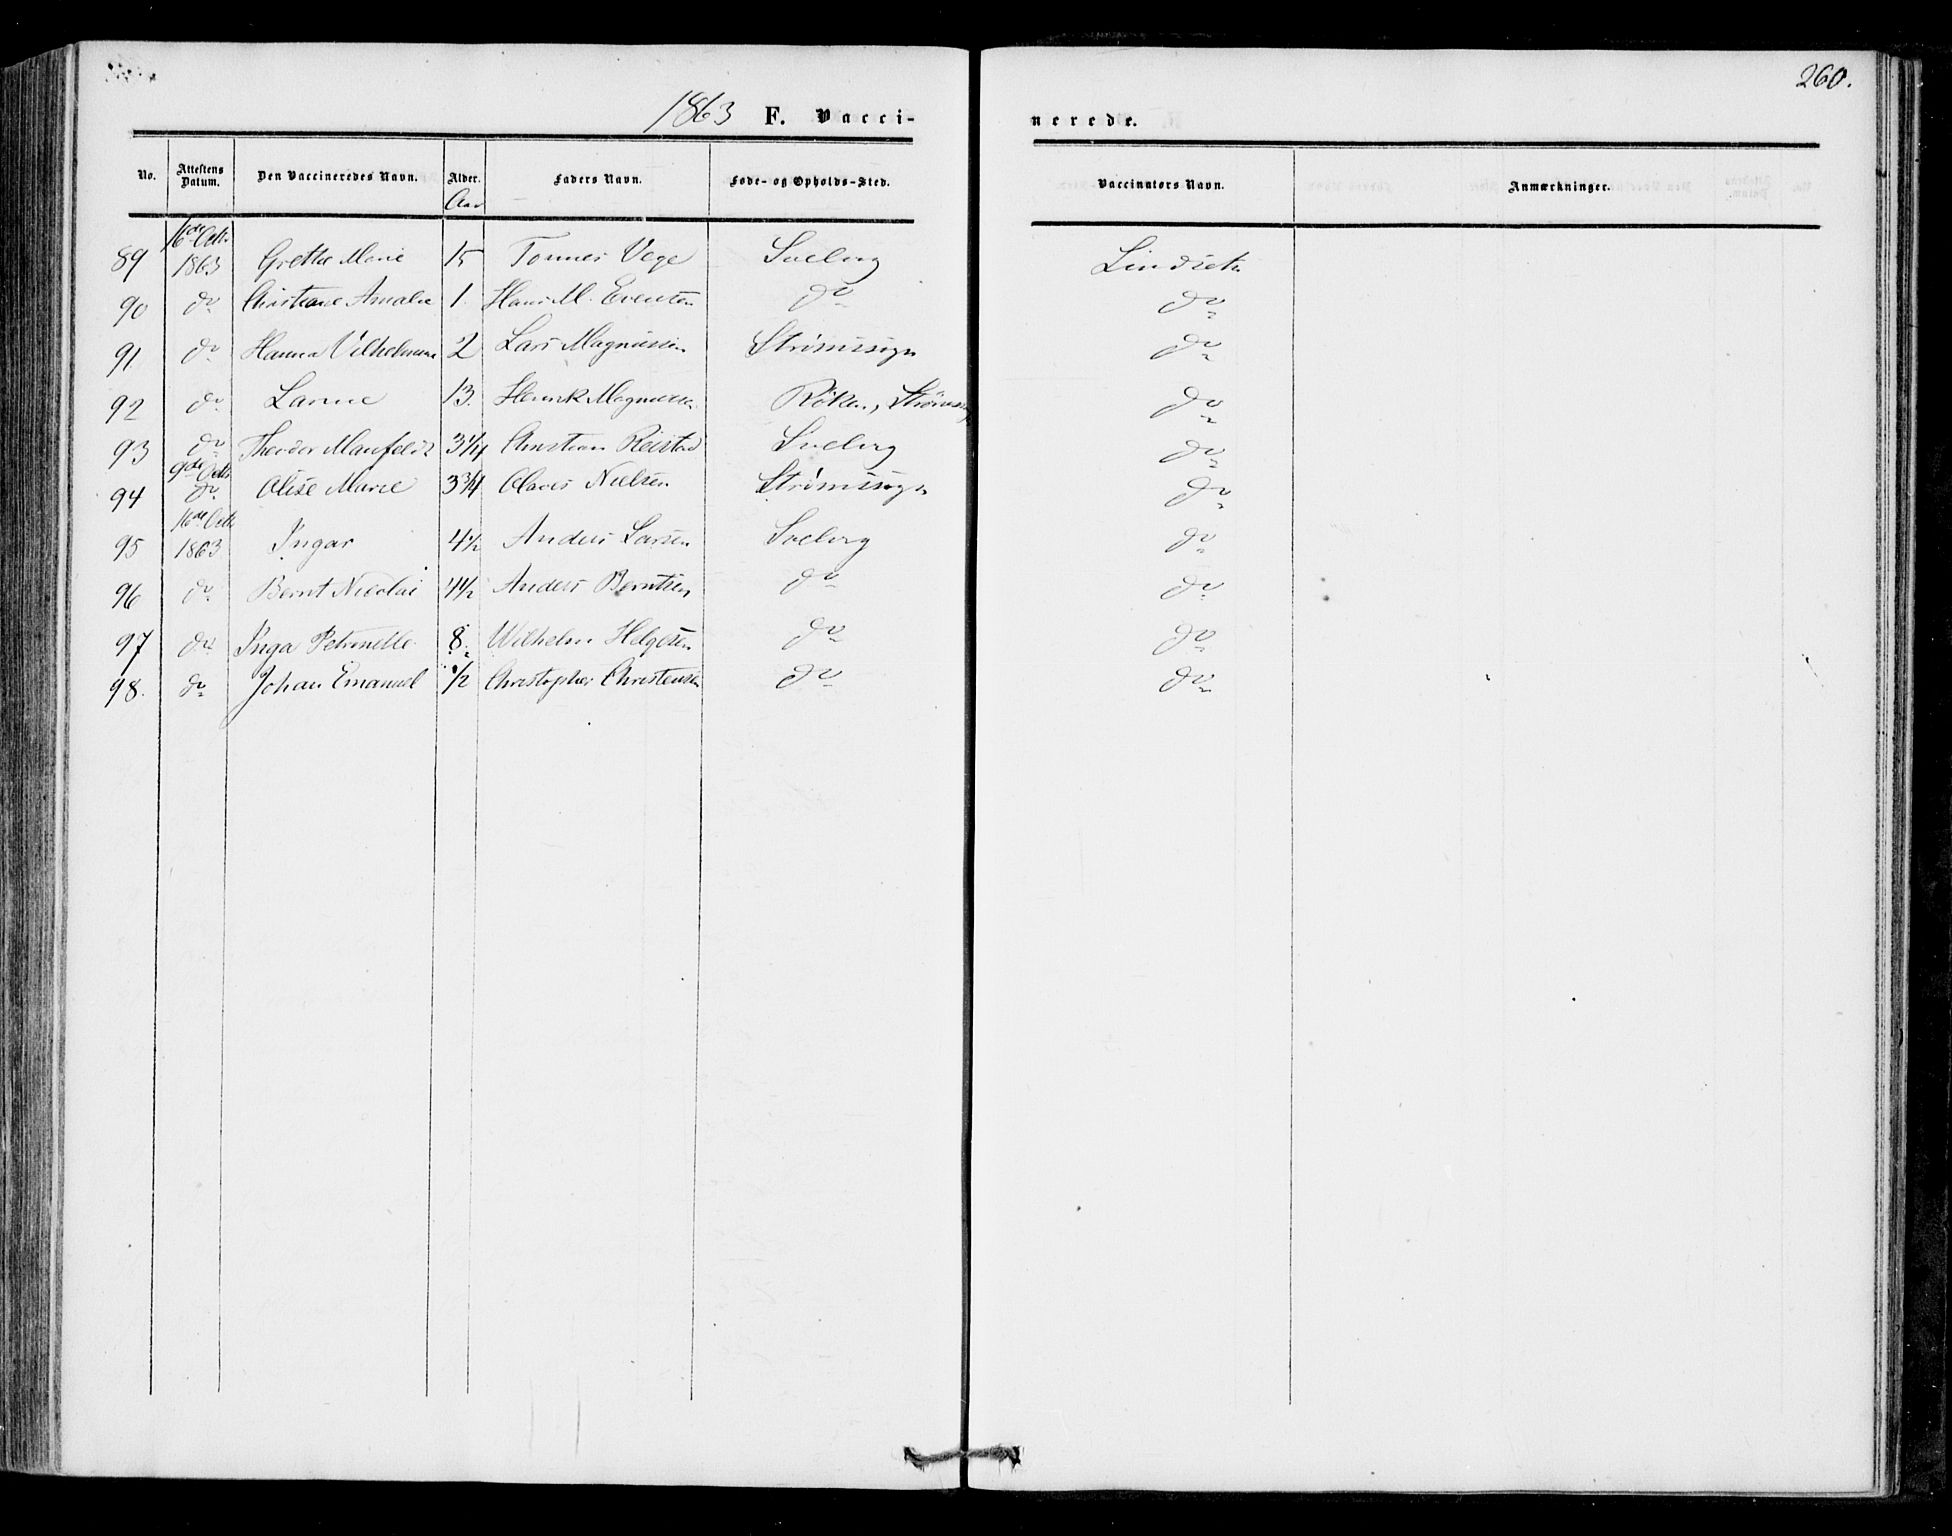 260.
1863 F. Vaccinerede.
No. Attestens Datum. Den Vaccineredes Navn. Alder. Faders Navn. Føde- og Opholds-Sted. Vaccinators Navn. Anmærkninger.
Aar
16de Octb.
89 1863 Grethe Marie 15 Tønnes Vege Svelvig
90 do Christiane Amalie 1. Hans M. Evensen do do
91 do Hanna Vilhelmine 2 Lars Magnussen Strømssogn do
92 do Larine 13. Henrik Magnussen Röken, Strømssogn do
93 do Theodor 3 1/4 Christian Reistad Svelvig do
9de Octb.
94 do Olise Marie 3 3/4 Olaves Nielsen Strømssogn do
16de Octb.
95 1863 Ingar 4 1/2 Anders Larsen Svelvig do
96 do Bernt Nicolai 4 1/2 Anders Berntsen do do
97 do Inga Petronelle 8. Wilhelm Helgesen do do
98. do Johan Emanuel 1/2 Christopher Christensen do do